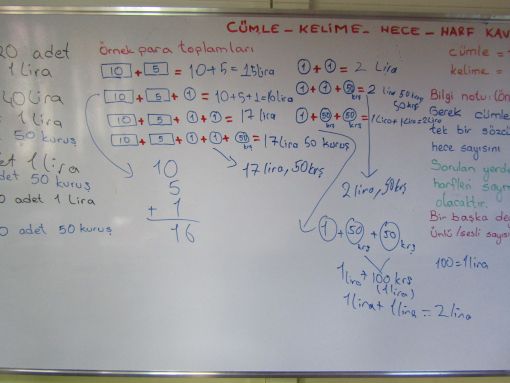 CÜMLE – KELİME – HECE – HARF KAV
20 adet
1 Lira
40 Lira
1 Lira
50 kuruş
et 1 Lira
adet 50 kuruş
0 adet 1 Lira
0 adet 50 kuruş
Örnek para toplamları
10 + 5 = 10+5 = 15 lira
10 + 5 + 1 = 10+5+1 = 16 lira
10 + 5 + 1 + 1 = 17 lira
10 + 5 + 1 + 1 + 50 krş = 17 lira 50 kuruş
17 lira, 50krş
10
5
+ 1
16
1 + 1 = 2 Lira
1 + 1 + 50 krş = 2 lira 50 krş
50 krş
1 + 50 krş + 50 krş = 1 lira + 1 lira = 2 lira
2 lira, 50krş
1 + 50 krş + 50 krş
1 lira + 100 krş
(1 lira)
1 lira + 1 lira = 2 lira
cümle =
kelime =
Bilgi notu: (Ön
Gerek cümle
tek bir sözcü
hece sayısını
Sorulan yerde
harfleri sayı
olacaktır.
Bir başka de
Ünlü/sesli sayısı
100 = 1 lira